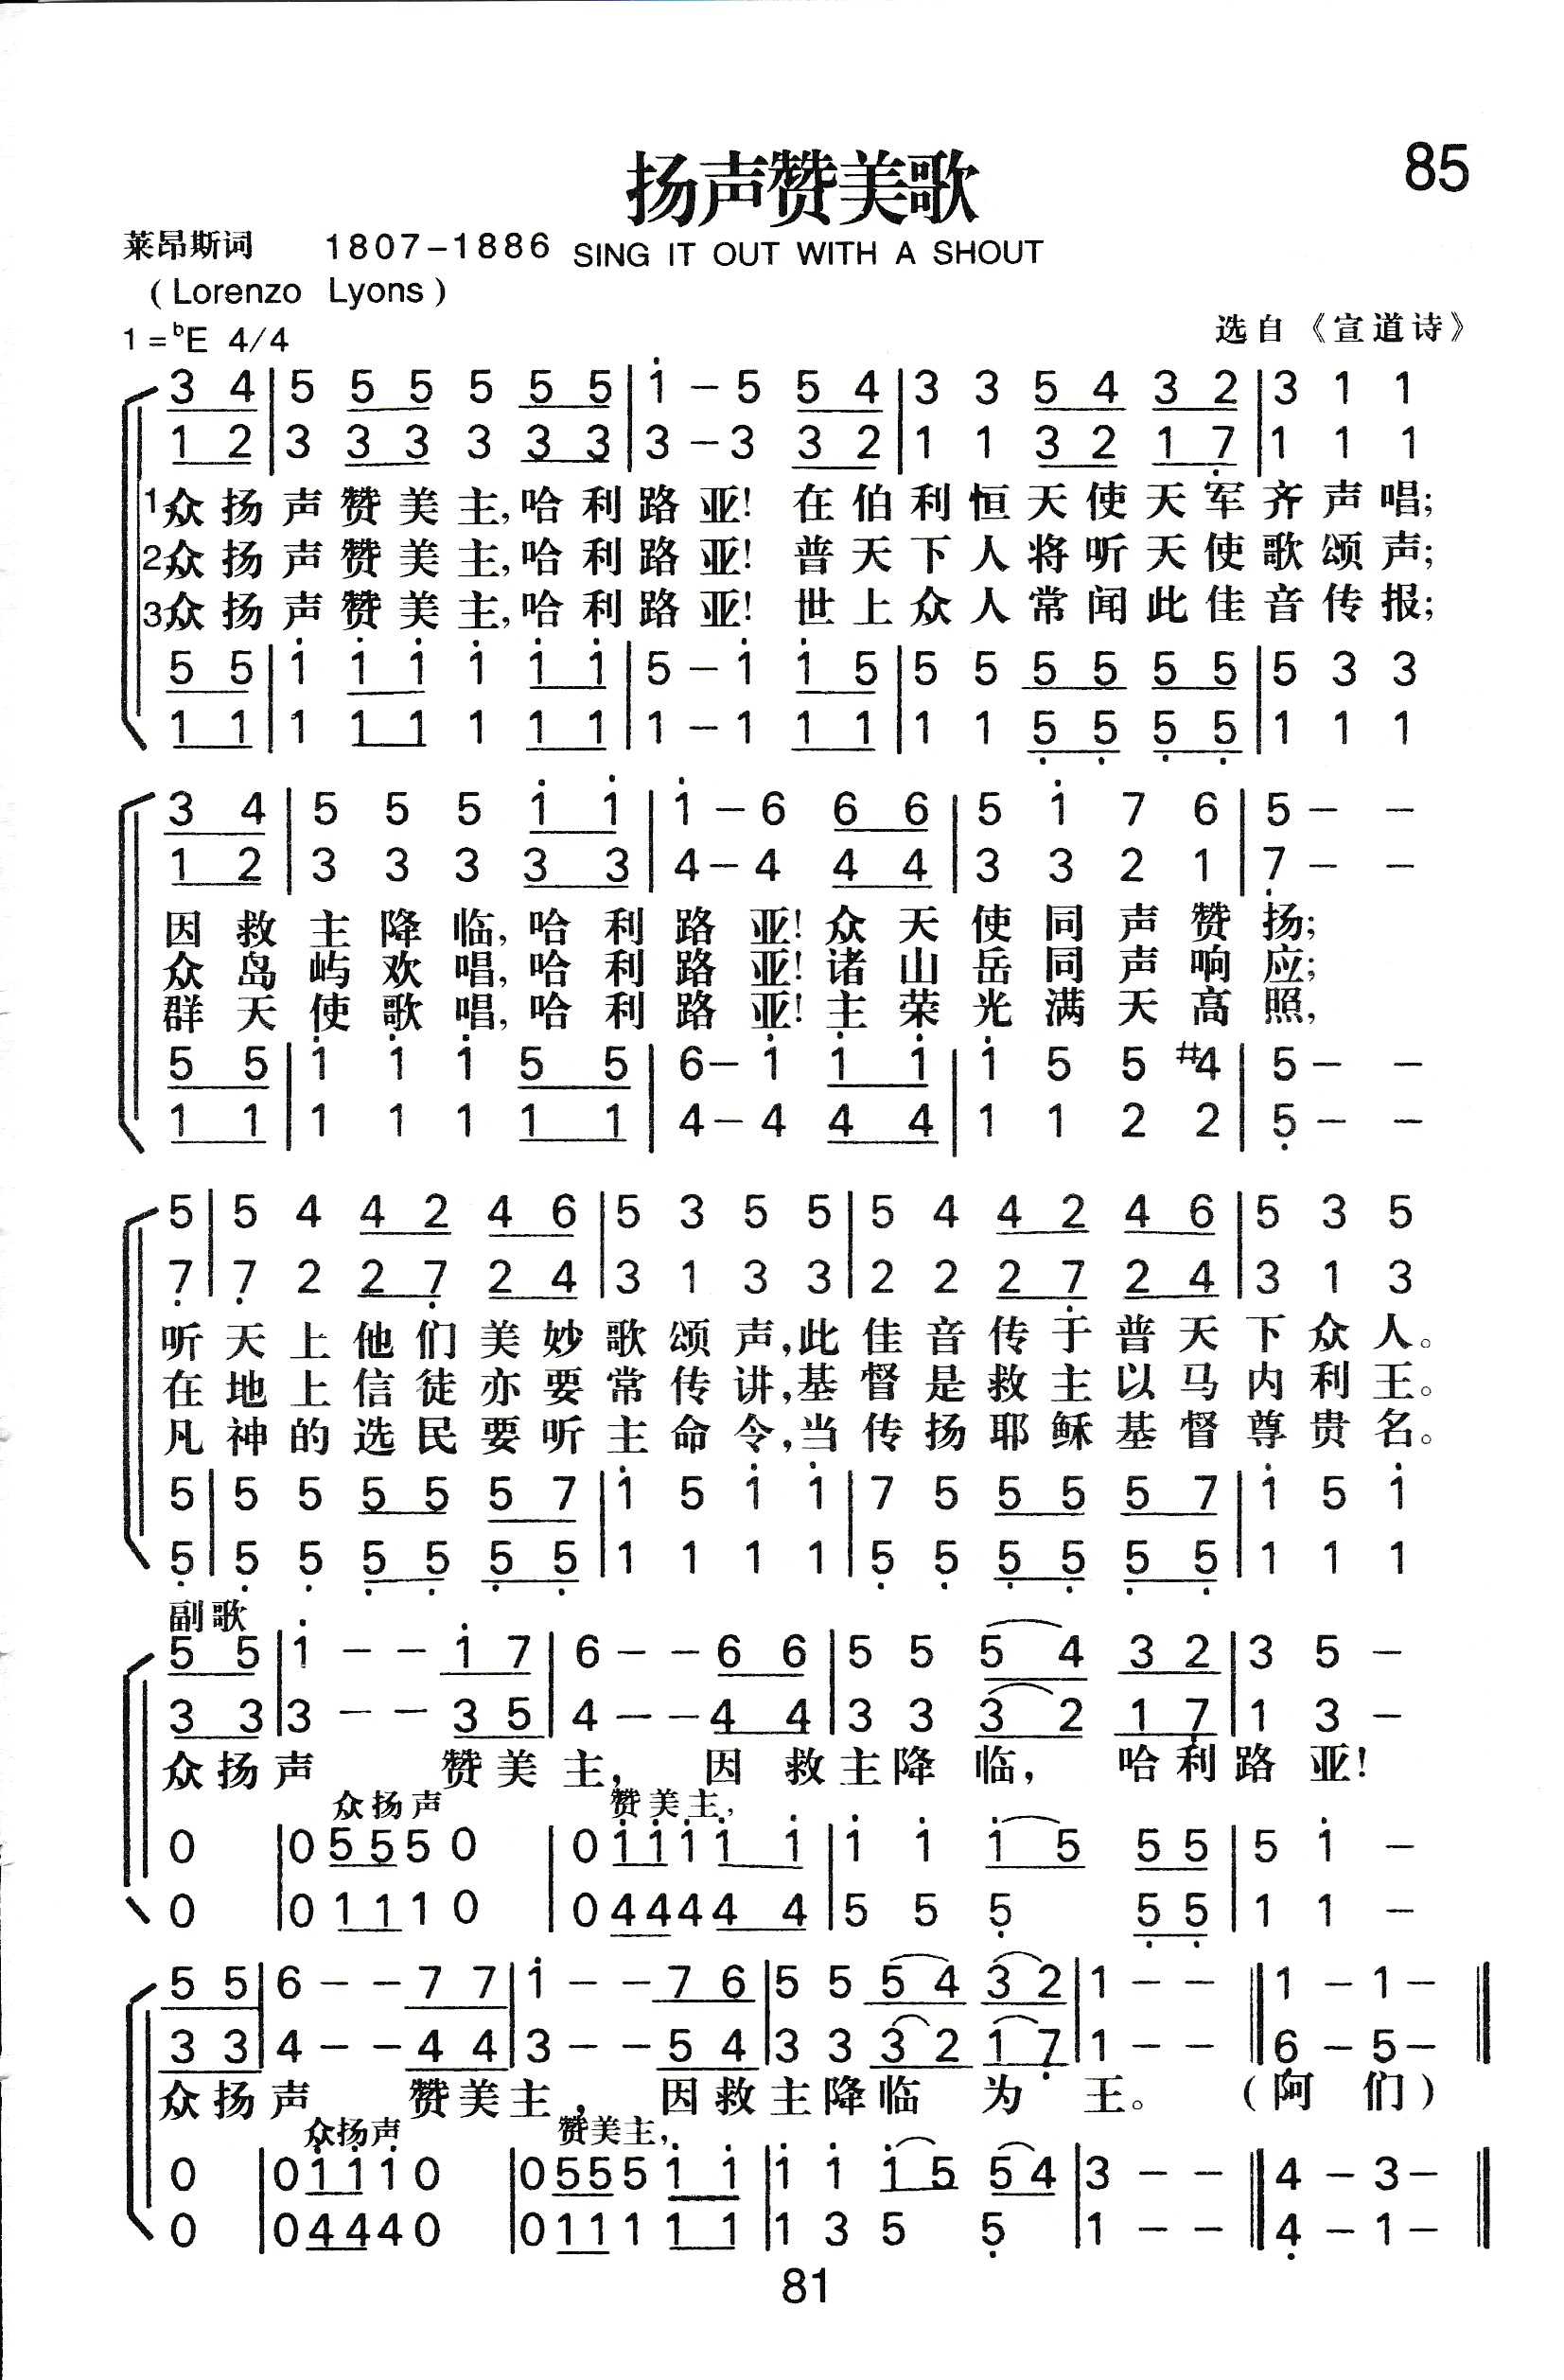 85
扬声赞美歌
莱昂斯词 1807-1886 SING IT OUT WITH A SHOUT
(Lorenzo Lyons)
1=ᵇE 4/4 选自《宣道诗》
3 4 | 5 5 5 5 5 5 | 1̇ - 5 5 4 | 3 3 5 4 3 2 | 3 1 1
1 2 | 3 3 3 3 3 3 | 3 - 3 3 2 | 1 1 3 2 1 7̣ | 1 1 1
1众扬声赞美主,哈利路亚!在伯利恒天使天军齐声唱;
2众扬声赞美主,哈利路亚!普天下人将听天使歌颂声;
3众扬声赞美主,哈利路亚!世上众人常闻此佳音传报;
5 5 | 1̇ 1̇ 1̇ 1̇ 1̇ 1̇ | 5 - 1̇ 1̇ 5 | 5 5 5 5 5 5 | 5 3 3
1 1 | 1 1 1 1 1 1 | 1 - 1 1 1 | 1 1 5̣ 5̣ 5̣ 5̣ | 1 1 1
3 4 | 5 5 5 1̇ 1̇ | 1̇ - 6 6 6 | 5 1̇ 7 6 | 5 - -
1 2 | 3 3 3 3 3 | 4 - 4 4 4 | 3 3 2 1 | 7̣ - -
因救主降临,哈利路亚!众天使同声赞扬;
众岛屿欢唱,哈利路亚!诸山岳同声响应;
群天使歌唱,哈利路亚!主荣光满天高照,
5 5 | 1̇ 1̇ 1̇ 5 5 | 6 - 1̇ 1̇ 1̇ | 1̇ 5 5 #4 | 5 - -
1 1 | 1 1 1 1 1 | 4 - 4 4 4 | 1 1 2 2 | 5̣ - -
5 | 5 4 4 2 4 6 | 5 3 5 5 | 5 4 4 2 4 6 | 5 3 5
7̣ | 7̣ 2 2 7̣ 2 4 | 3 1 3 3 | 2 2 2 7̣ 2 4 | 3 1 3
听天上他们美妙歌颂声,此佳音传于普天下众人。
在地上信徒亦要常传讲,基督是救主以马内利王。
凡神的选民要听主命令,当传扬耶稣基督尊贵名。
5 | 5 5 5 5 5 7 | 1̇ 5 1̇ 1̇ | 7 5 5 5 5 7 | 1̇ 5 1̇
5̣ | 5̣ 5̣ 5̣ 5̣ 5̣ 5̣ | 1 1 1 1 | 5̣ 5̣ 5̣ 5̣ 5̣ 5̣ | 1 1 1
副歌
5 5 | 1̇ - - 1̇ 7 | 6 - - 6 6 | 5 5 5 4 3 2 | 3 5 -
3 3 | 3 - - 3 5 | 4 - - 4 4 | 3 3 3 2 1 7̣ | 1 3 -
众扬声 赞美主, 因救主降临, 哈利路亚!
众扬声 赞美主,
0 | 0 5 5 5 0 | 0 1̇ 1̇ 1̇ 1̇ 1̇ | 1̇ 1̇ 1̇ 5 5 5 | 5 1̇ -
0 | 0 1 1 1 0 | 0 4 4 4 4 4 | 5 5 5̣ 5̣ 5̣ | 1 1 -
5 5 | 6 - - 7 7 | 1̇ - - 7 6 | 5 5 5 4 3 2 | 1 - - ‖ 1 - 1 - ‖
3 3 | 4 - - 4 4 | 3 - - 5 4 | 3 3 3 2 1 7̣ | 1 - - ‖ 6 - 5 - ‖
众扬声 赞美主, 因救主降临为王。(阿们)
众扬声 赞美主,
0 | 0 1̇ 1̇ 1̇ 0 | 0 5 5 5 1̇ 1̇ | 1̇ 1̇ 1̇ 5 5 4 | 3 - - ‖ 4 - 3 -
0 | 0 4 4 4 0 | 0 1 1 1 1 1 | 1 3 5 5̣ | 1 - - ‖ 4̣ - 1 - ‖
81